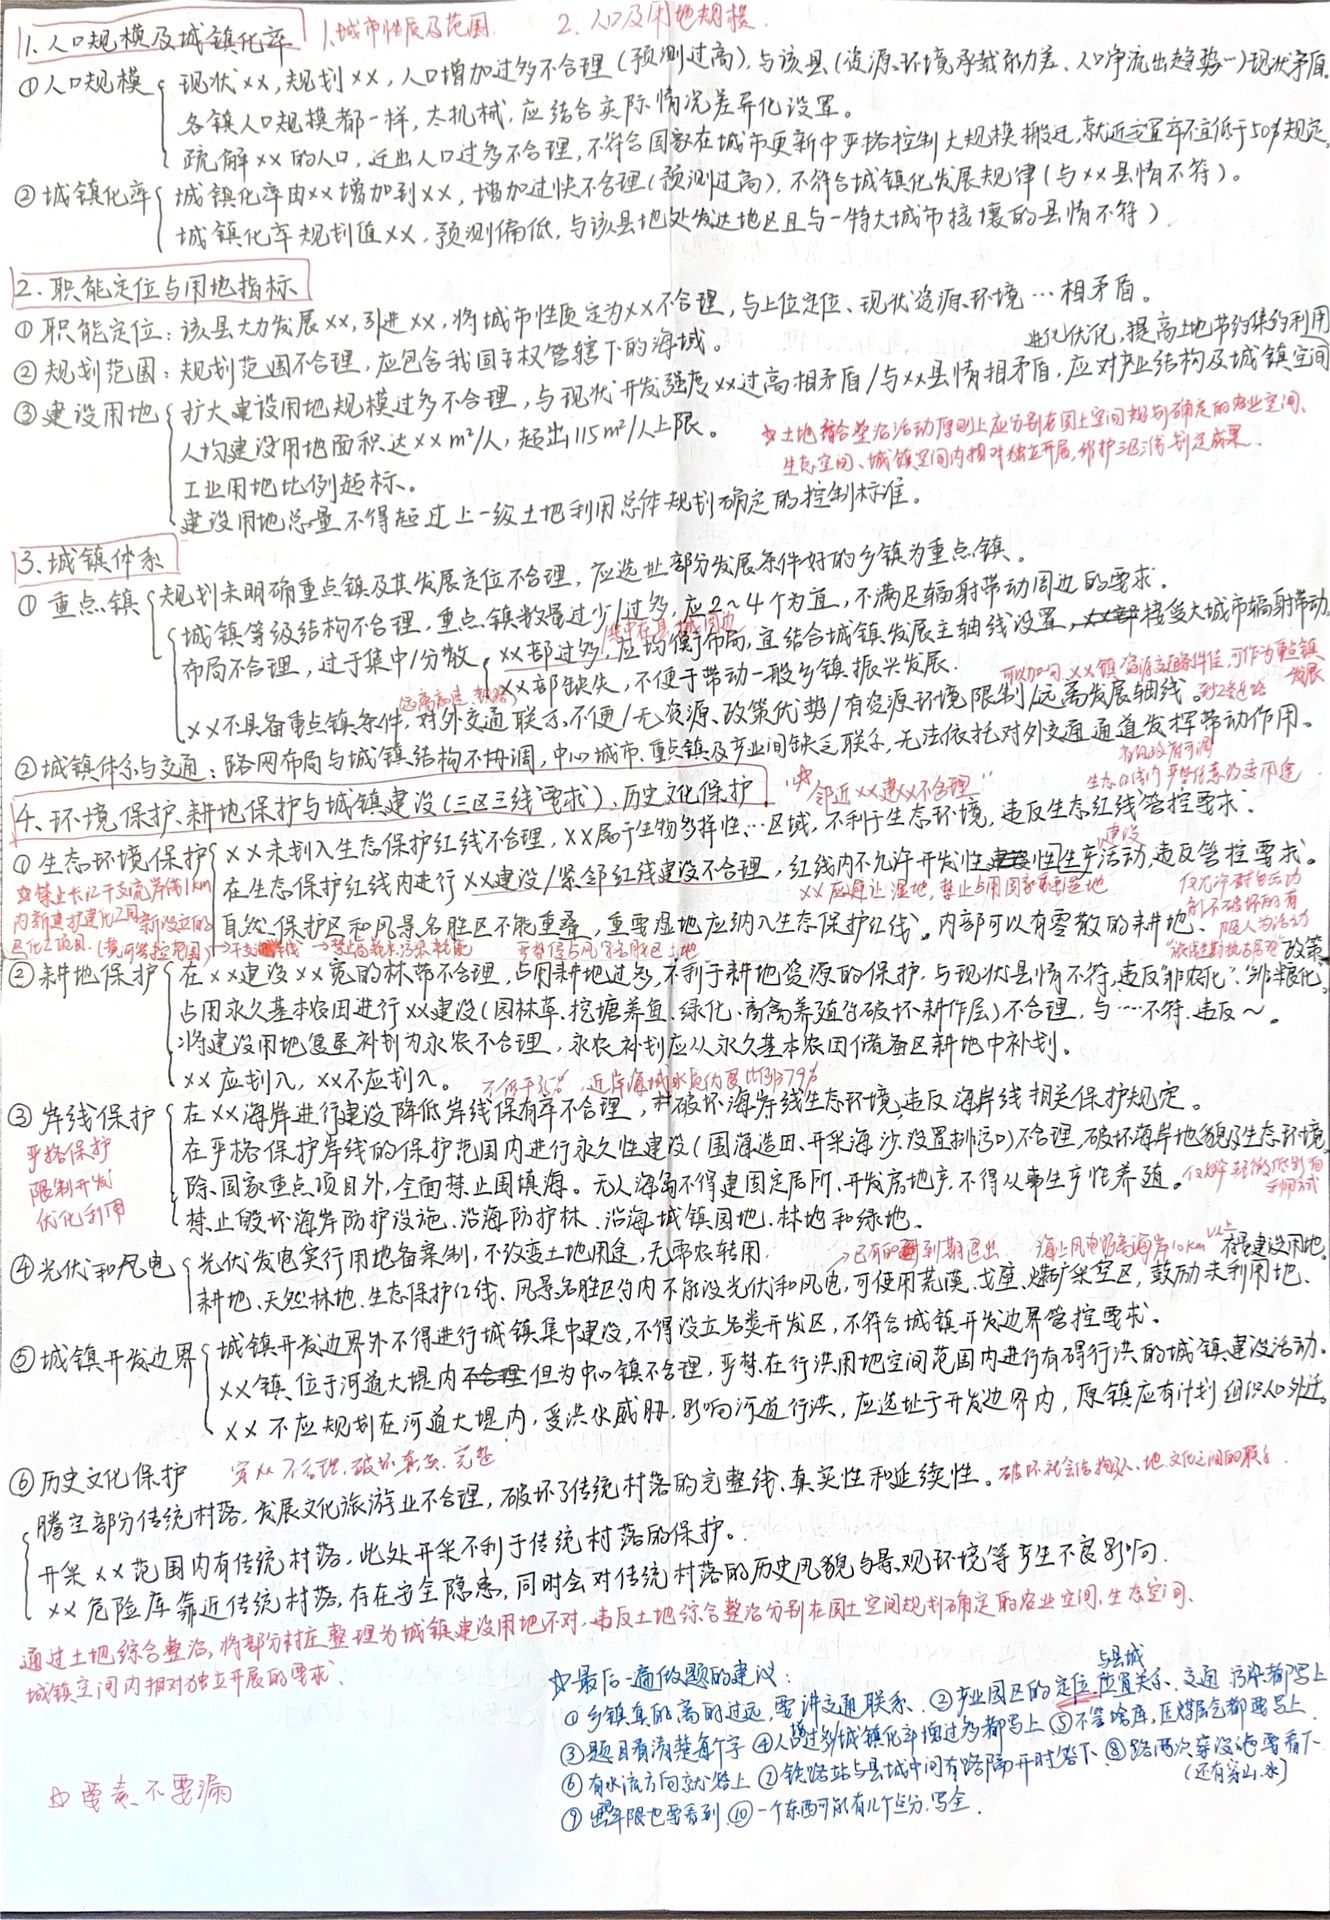 1.人口规模及城镇化率 1.城市性质及范围 2.人口及用地规模.
①人口规模 现状××,规划××,人口增加过多不合理(预测过高),与该县(资源环境承载能力差、人口净流出趋势一)现状矛盾.
各镇人口规模都一样,太机械,应结合实际情况差异化设置。
疏解××的人口,迁出人口过多不合理,不符合国家在城市更新中严格控制大规模搬迁,就近安置率不宜低于50%规定.
②城镇化率 城镇化率由××增加到××,增加过快不合理(预测过高),不符合城镇化发展规律(与××县情不符)。
城镇化率规划值××,预测偏低,与该县地处发达地区且与一特大城市接壤的县情不符)
2.职能定位与用地指标
①职能定位:该县大力发展××,引进××,将城市性质定为××不合理,与上位定位、现状资源、环境…相矛盾。
②规划范围:规划范围不合理,应包含我国主权管辖下的海域。
进化优化,提高土地节约集约利用
③建设用地 扩大建设用地规模过多不合理,与现状开发强度××过高相矛盾/与××县情相矛盾,应对产业结构及城镇空间
人均建设用地面积达××m²/人,超出115m²/人上限。
☆土地综合整治活动原则上应分别在国土空间规划确定的农业空间、
生态空间、城镇空间内相对独立开展,维护三区三线划定成果.
工业用地比例超标。
建设用地总量不得超过上一级土地利用总体规划确定的控制标准。
3.城镇体系
①重点镇 规划未明确重点镇及其发展定位不合理,应选址部分发展条件好的乡镇为重点镇。
城镇等级结构不合理,重点镇数量过少/过多,应2~4个为宜,不满足辐射带动周边的要求.
集中在县城周边
布局不合理,过于集中/分散 ××部过多,应均衡布局,宜结合城镇发展主轴线设置,接受大城市辐射带动.
××部缺失,不便于带动一般乡镇振兴发展.
可以加句××镇资源交通条件佳,可作为重点镇发展
(远离高速、铁路)
××不具备重点镇条件,对外交通联系不便/无资源、政策优势/有资源环境限制/远离发展轴线.
②城镇体系与交通:路网布局与城镇结构不协调,中心城市、重点镇及产业间缺乏联系,无法依托对外交通通道发挥带动作用。
4.环境保护、耕地保护与城镇建设(三区三线要求),历史文化保护
☆"邻近××建××不合理"
生态红线内严禁任意改变用途
①生态环境保护 ××未划入生态保护红线不合理,××属于生物多样性…区域,不利于生态环境,违反生态红线管控要求.
建设
在生态保护红线内进行××建设/紧邻红线建设不合理,红线内不允许开发性生产活动,违反管控要求。
☆禁止长江干支流岸线1km
内新建扩建化工园新设立的
区化工项目.(黄河管控范围)
××应避让湿地,禁止占用国家重要湿地
仅允许对自然功
能不破坏的有
限人为活动
自然保护区和风景名胜区不能重叠,重要湿地应纳入生态保护红线。内部可以有零散的耕地.
②耕地保护 在××建设××宽的林带不合理,占用耕地过多,不利于耕地资源的保护,与现状县情不符,违反"非农化"、"非粮化"政策
占用永久基本农田进行××建设(园林草、挖塘养鱼、绿化、畜禽养殖等破坏耕作层)不合理,与…不符,违反~。
将建设用地复垦补划为永农不合理,永农补划应从永久基本农田储备区耕地中补划。
××应划入,××不应划入。
不低于35%,近岸海域水质优良比例≥79%
③岸线保护 在××海岸进行建设降低岸线保有率不合理,破坏海岸线生态环境,违反海岸线相关保护规定。
严格保护
限制开发
优化利用
在严格保护岸线的保护范围内进行永久性建设(围海造田、开采海沙、设置排污口)不合理,破坏海岸地貌及生态环境.
除国家重点项目外,全面禁止围填海。无人海岛不得建固定居所、开发房地产,不得从事生产性养殖。
禁止毁坏海岸防护设施、沿海防护林、沿海城镇园地、林地和绿地.
④光伏和风电 光伏发电实行用地备案制,不改变土地用途,无需农转用. →已有的到期退出 海上风电距离海岸10km以上 存量建设用地。
耕地、天然林地、生态保护红线、风景名胜区的内不能设光伏和风电,可使用荒漠、戈壁、煤矿采空区,鼓励未利用地、
⑤城镇开发边界 城镇开发边界外不得进行城镇集中建设,不得设立各类开发区,不符合城镇开发边界管控要求。
××镇位于河道大堤内但为中心镇不合理,严禁在行洪用地空间范围内进行有碍行洪的城镇建设活动.
××不应规划在河道大堤内,受洪水威胁,影响河道行洪,应选址于开发边界内,原镇应有计划组织人口外迁。
⑥历史文化保护 穿××不合理,破坏真实、完整
腾空部分传统村落,发展文化旅游业不合理,破坏了传统村落的完整线、真实性和延续性。破坏社会结构及人、地、文化之间的联系.
开采××范围内有传统村落,此处开采不利于传统村落的保护。
××危险库靠近传统村落,存在安全隐患,同时会对传统村落的历史风貌与景观环境等产生不良影响.
通过土地综合整治,将部分村庄整理为城镇建设用地不对,违反土地综合整治分别在国土空间规划确定的农业空间、生态空间、
城镇空间内相对独立开展的要求.
☆最后一遍做题的建议:
与县城
①乡镇真的离的过远,要讲交通联系.②产业园区的定位、位置关系、交通、污染都写上
③题目看清楚每个字 ④人口增过多/城镇化率增过多都写上 ⑤不管啥库,压煤层气都要写上.
⑥有水流方向就答上 ⑦铁路站与县城中间有路隔开时答下.⑧路两次穿没绝要看下.
(还有穿山、水)
⑨年限也要看到.⑩一个东西可能有几个点分,写全.
☆要素不要漏